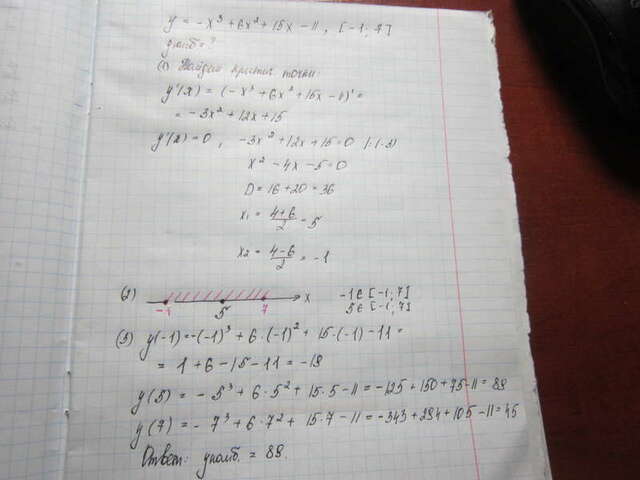 y = -x³ + 6x² + 15x - 11, [-1; 7]
yнаиб = ?
(1) Найдём критич. точки:
y'(x) = (-x³ + 6x² + 15x - 11)' =
= -3x² + 12x + 15
y'(x) = 0, -3x² + 12x + 15 = 0 |:(-3)
x² - 4x - 5 = 0
D = 16 + 20 = 36
x₁ = (4+6)/2 = 5
x₂ = (4-6)/2 = -1
(2) -1 5 7 x -1 ∈ [-1; 7]
5 ∈ [-1; 7]
(3) y(-1) = -(-1)³ + 6·(-1)² + 15·(-1) - 11 =
= 1 + 6 - 15 - 11 = -19
y(5) = -5³ + 6·5² + 15·5 - 11 = -125 + 150 + 75 - 11 = 89
y(7) = -7³ + 6·7² + 15·7 - 11 = -343 + 294 + 105 - 11 = 45
Ответ: yнаиб. = 89.